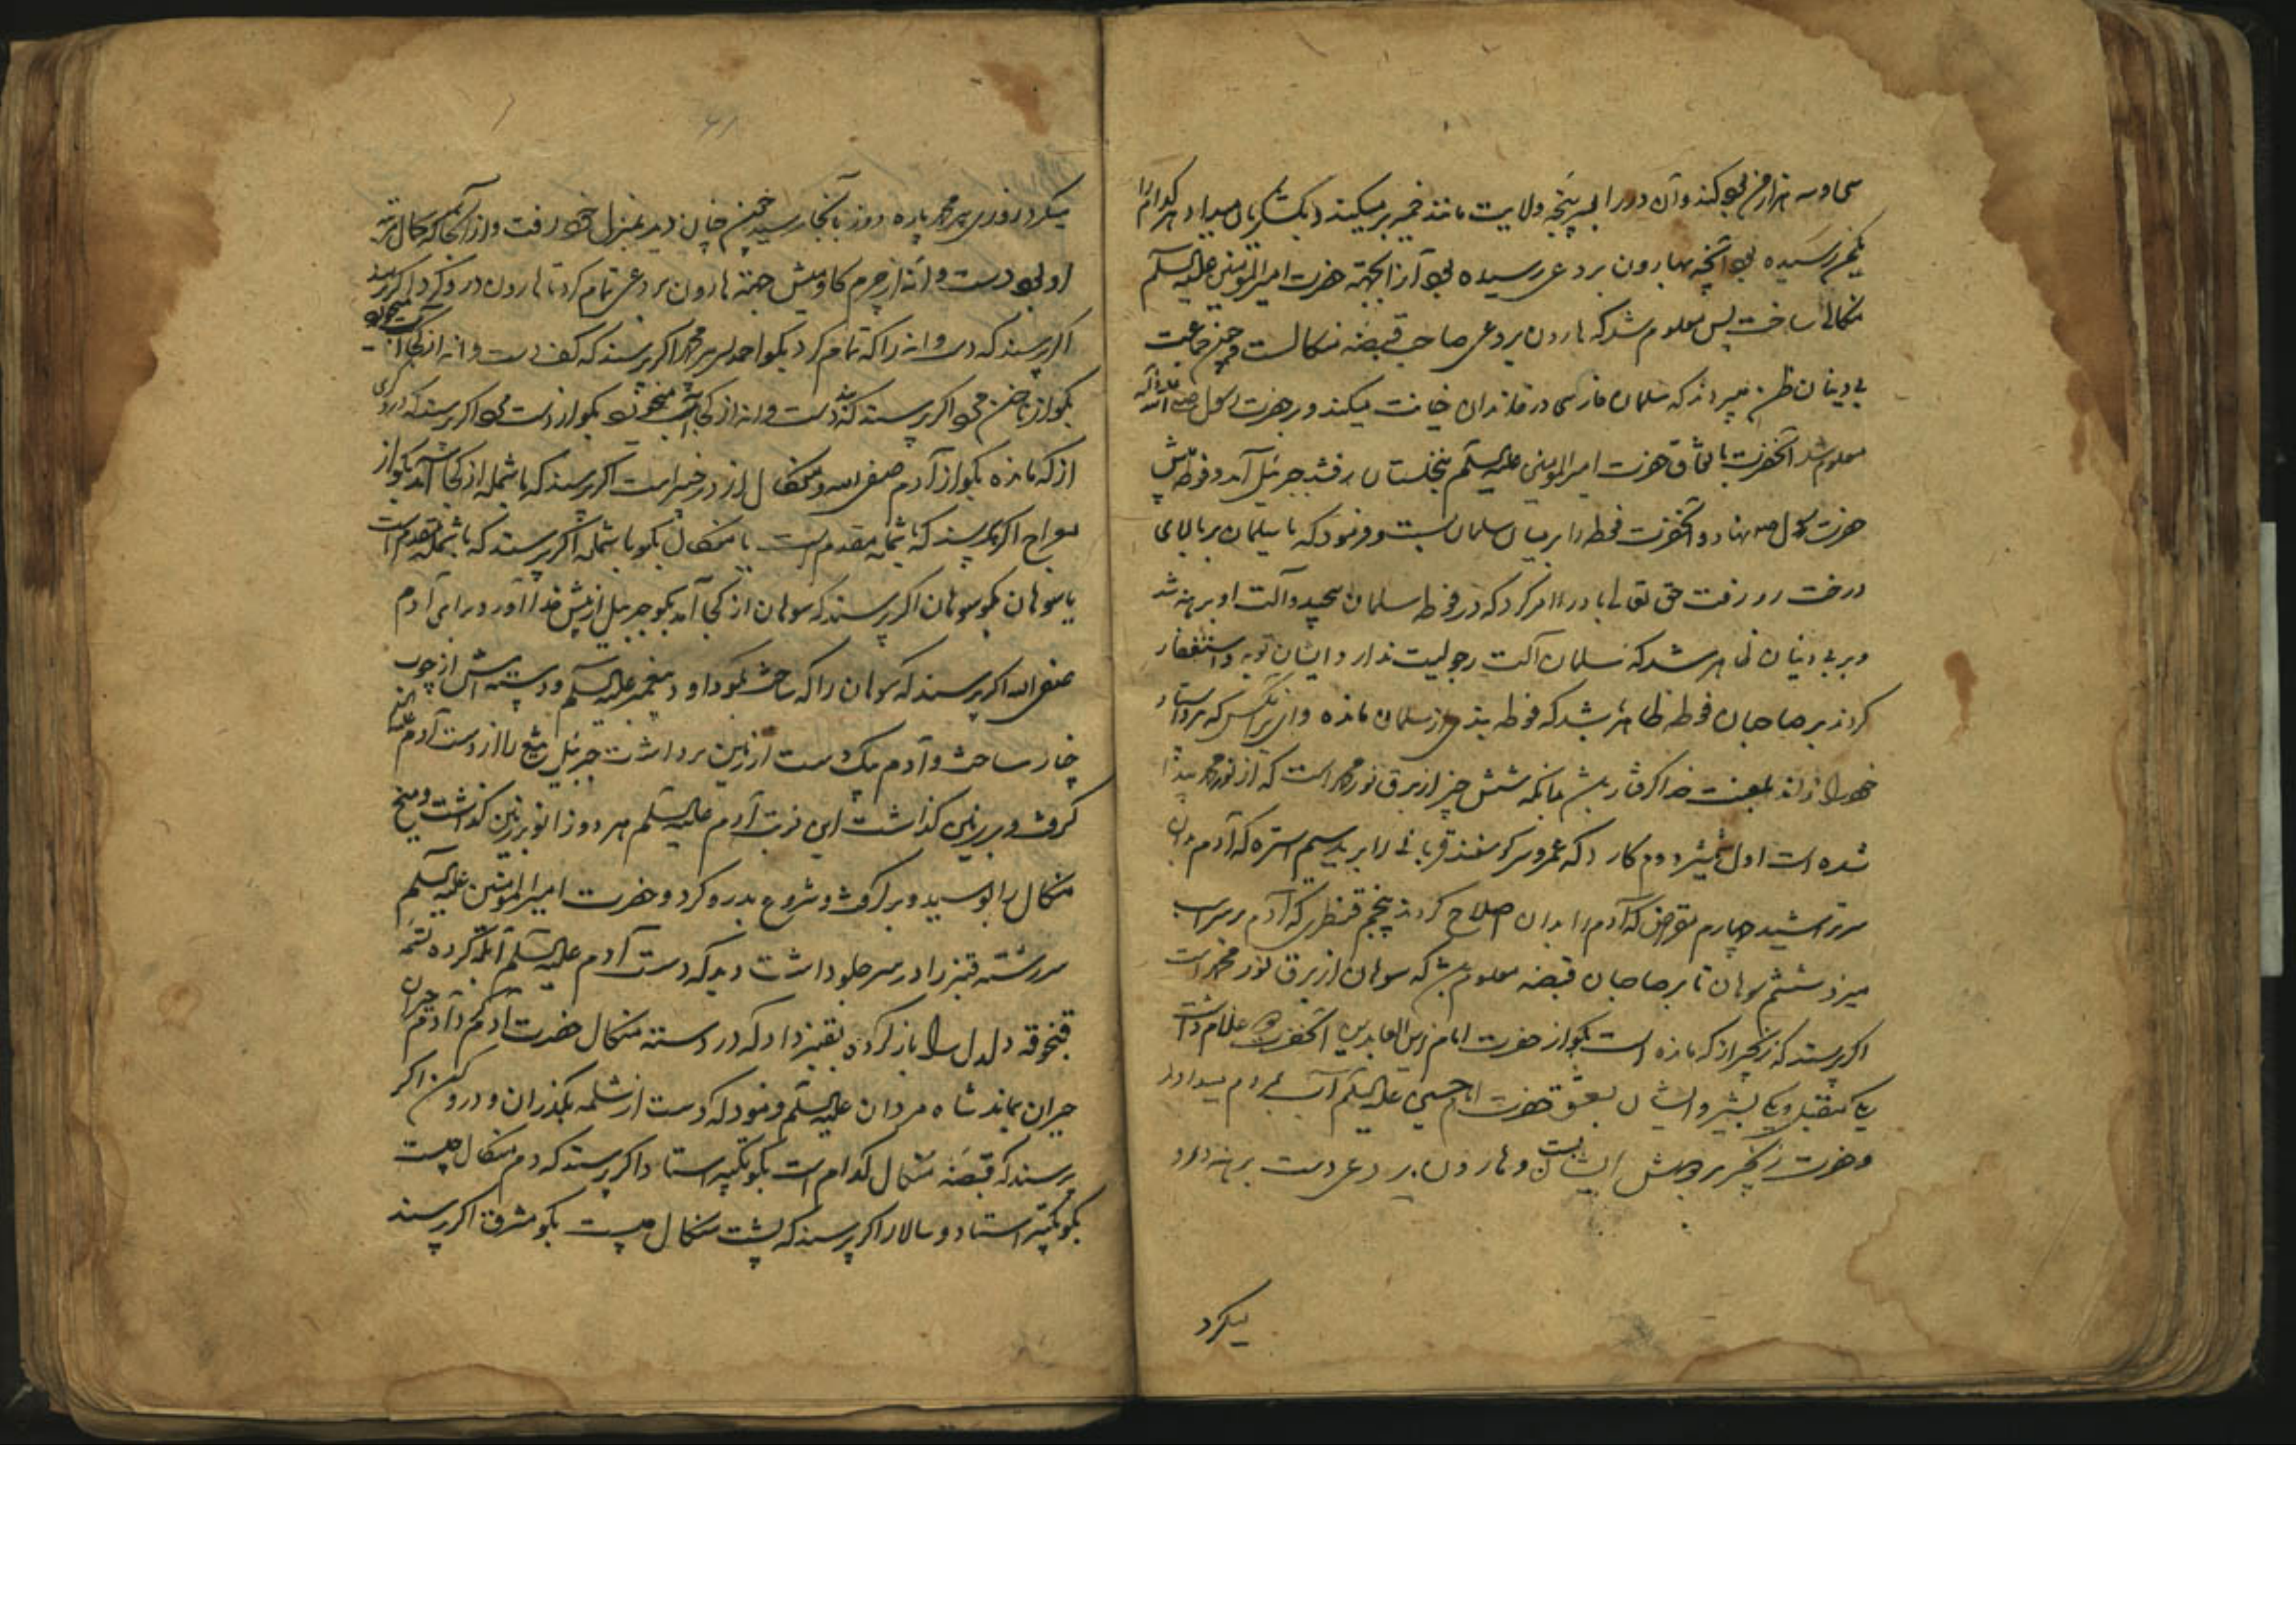 سی و سه هزار من بود کند و آن در را بسر پنجه ولایت مانند خمیر میکند و بلشکریان میداد هر کدام را
نیم رسیده بود آنچه بهارون بردعی رسیده بود آنرا بجهة حضرت امیرالمومنین علیه السلم
منکالی ساخت پس معلوم شد که هارون بردعی صاحب قبضه منکالست و چون جماعت
بی دینان ظن میبردند که سلمان فارسی در خاندان خیانت میکند و بر حضرت رسول صلی الله علیه و آله
معلوم شد آنحضرت باتفاق حضرت امیرالمومنین علیه السلم بنخلستان رفتند جبرئیل آمد و فوطه پیش
حضرت رسول ص نهاد و آنحضرت فوطه را بر میان سلمان بست و فرمود که یا سلمان بر بالای
درخت رو رفت حق تعالی باد را امر کرد که در فوطه سلمان پیچید و آلت او برهنه شد
و بر بی دینان ظاهر شد که سلمان آلت رجولیت ندارد ایشان توبه و استغفار
کردند بر صاحبان فوطه ظاهر شد که فوطه بندی از سلمان مانده و ای بر آنکس که مرد استاد
خود را نداند بلعنت خدا گرفتار بدانکه شش چیز از برق نور محمد است که از نور محمد پیدا
شده است اول شمشیر دوم کارد که عمرو سر کوسفند قربانی را برید سیم استره که آدم بدان
سر تراشید چهارم مقراض که آدم را بدان اصلاح کردند پنجم که آدم بر سر اسب
میزد ششم سوهان تا بر صاحبان قبضه معلوم باشد که سوهان از برق نور محمد است
اکر پرسند که زنجیر از که مانده است بکو از حضرت امام زین العابدین آنحضرت دو غلام داشت
یکی مقبل و یکی بشیر و ایشان بعشق حضرت امام حسین علیه السلم آب بمردم میدادند
و حضرت زنجیر بر دوش ایشان بست و هارون بردعی دست برهنه درو
میکرد
میکرد روزی پیر محمد پاره دوز بآنجا رسید چنین چنان دید بمنزل خود رفت و از آنجا که کمال مرتبه
او بود دست وانه از چرم کاومیش جهة هارون بردعی تمام کرد تا هارون درو کرد اکر پرسند
اکر پرسند که دست وانه را که تمام کرد بکو احمد پیر محمد اکر پرسند که کف دست وانه از کجا آب میخورد
بکو از ناخن می اکر پرسند که پشت دست وانه از کجا آب میخورد بکو از دست می اکر پرسند که دروکری
از که مانده بکو از آدم صفی الله و منکال از در خیبر است اکر پرسند که با شمله از کجا آمد بکو از
معراج اکر پرسند که با شمله مقدم است یا منکال بکو با شمله اکر پرسند که با شمله مقدم است
یا سوهان بکو سوهان اکر پرسند که سوهان از کجا آمد بکو جبرئیل از پیش خدا آورد برای آدم
صفی الله اکر پرسند که سوهان را که ساخت بکو داود پیغمبر علیه السلم و دسته اش از چوب
خار ساخت و آدم یک دست از زمین برداشت جبرئیل تیغ را از دست آدم علیه السلم
کرفت و بر زمین کذاشت این نوبت آدم علیه السلم هر دو زانو بر زمین کذاشت و تیغ
منکال را بوسید و بر کرفت و شروع بدرو کرد و حضرت امیرالمومنین علیه السلم
سر رشته قنبر را در سر جلو داشت دید که دست آدم علیه السلم آبله کرده تسمه
قنجوقه دلدل را باز کرده بقنبر داد که در دسته منکال حضرت آدم کم و آدم حیران
حیران بماند شاه مردان علیه السلم فرمود که دست از شلمه بکذران و درو کن اکر
پرسند که قبضه منکال کدام است بکو تکیه استاد اکر پرسند که دم منکال چیست
بکو تکیه استاد و سالار اکر پرسند که پشت منکال چیست بکو مشرق اکر پرسند